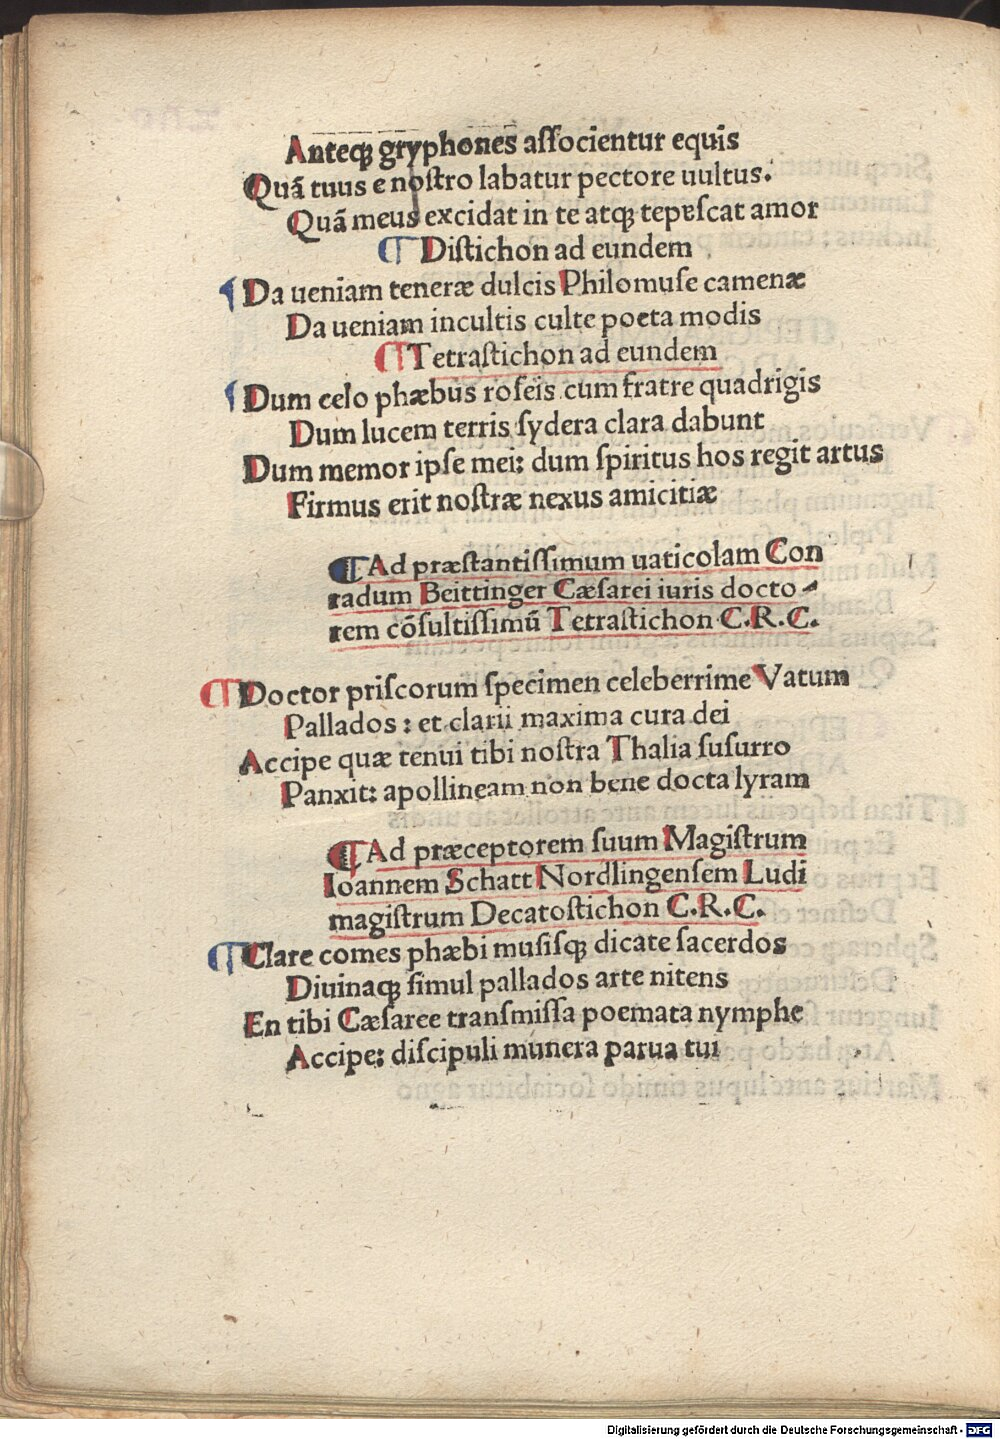 Anteqꝫ gryphones aſſocientur equis
Quã tuus e noſtro labatur pectore uultus.
Quã meus excidat in te atqꝫ tepeſcat amor
¶ Diſtichon ad eundem
¶ Da ueniam teneræ dulcis Philomuſe camenæ
Da ueniam incultis culte poeta modis
¶ Tetraſtichon ad eundem
¶ Dum celo phæbus roſeis cum fratre quadrigis
Dum lucem terris ſydera clara dabunt
Dum memor ipſe mei: dum ſpiritus hos regit artus
Firmus erit noſtræ nexus amicitiæ
¶ Ad præſtantiſſimum uaticolam Con
radum Beittinger Cæſarei iuris docto-
rem cõſultiſſimũ Tetraſtichon C.R.C.
¶ Doctor priſcorum ſpecimen celeberrime Vatum
Pallados: et clarii maxima cura dei
Accipe quæ tenui tibi noſtra Thalia ſuſurro
Panxit: apollineam non bene docta lyram
¶ Ad præceptorem ſuum Magiſtrum
Ioannem Schatt Nordlingenſem Ludi
magiſtrum Decatoſtichon C.R.C.
¶ Clare comes phæbi muſiſqꝫ dicate ſacerdos
Diuinaqꝫ ſimul pallados arte nitens
En tibi Cæſaree tranſmiſſa poemata nymphe
Accipe: diſcipuli munera parua tui
Digitalisierung gefördert durch die Deutsche Forschungsgemeinschaft - DFG